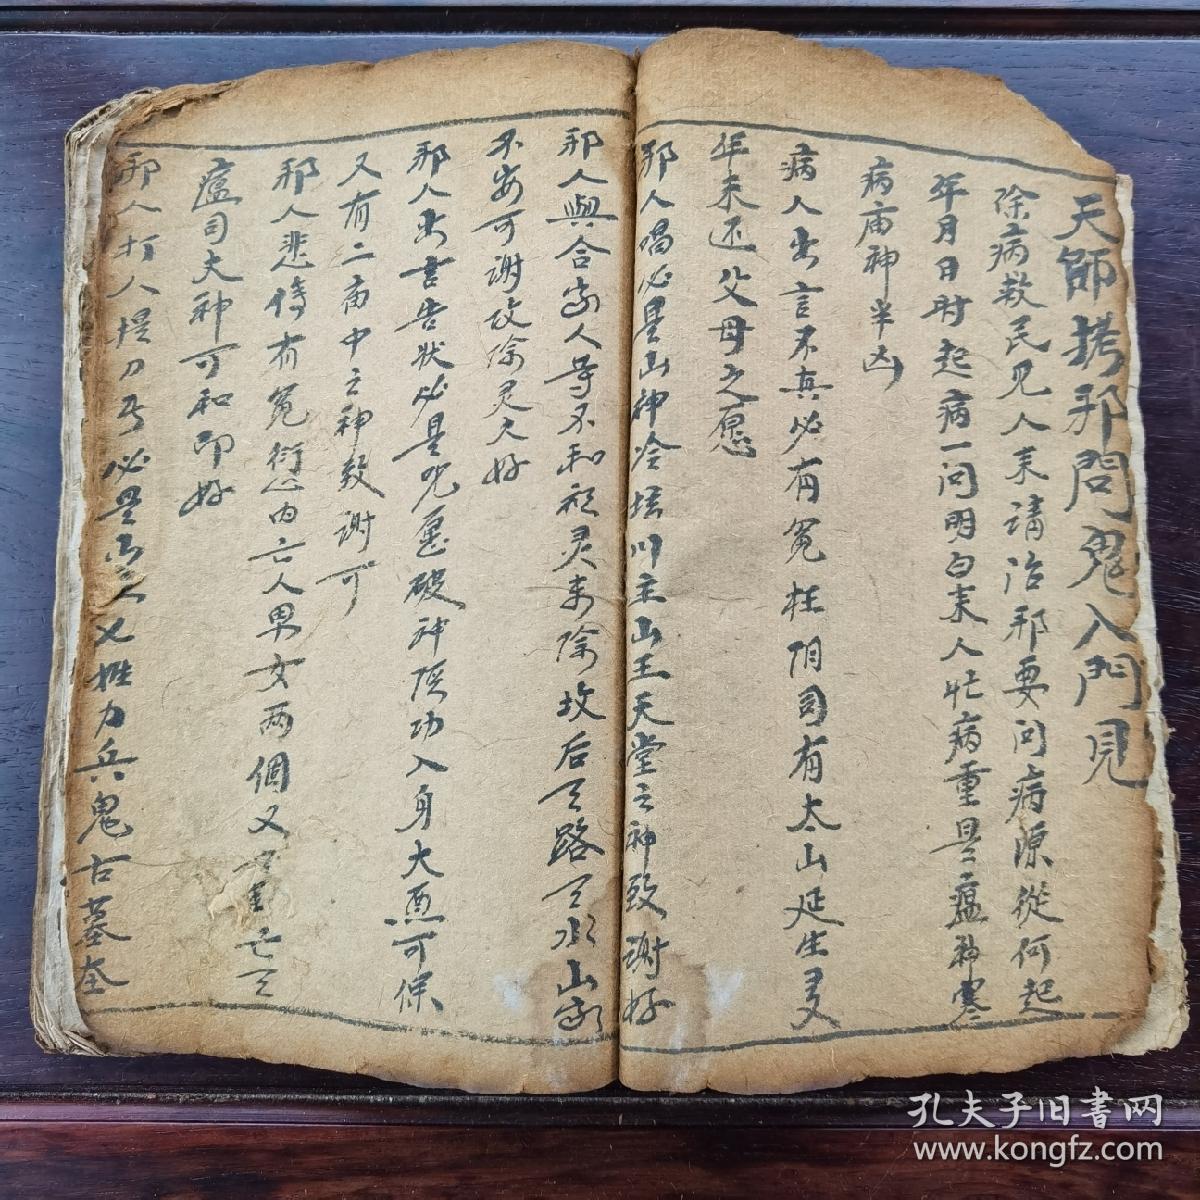 天師拷邪問鬼入門見
除病救民凡人来請治邪要问病源從何起
年月日时起病一问明白来人忙病重是瘟神寒
病庙神半凶
病人出言不真必有冤枉阴司有太山延生灵又
年未还父母之愿
邪人唱必是山神冷坛川主山王天堂之神致谢好
邪人與合家人等不和祖灵来除坟后 路 水山家
不安可谢坟除灵大好
邪人出言告状必是咒愿破神 功入身大 可保
又有二庙中之神致谢可
邪人悲 有冤 内亡人男女两個又 亡
瘟司大神可和即好
邪人打人提刀 必是 力兵鬼古墓
孔夫子旧书网
www.kongfz.com